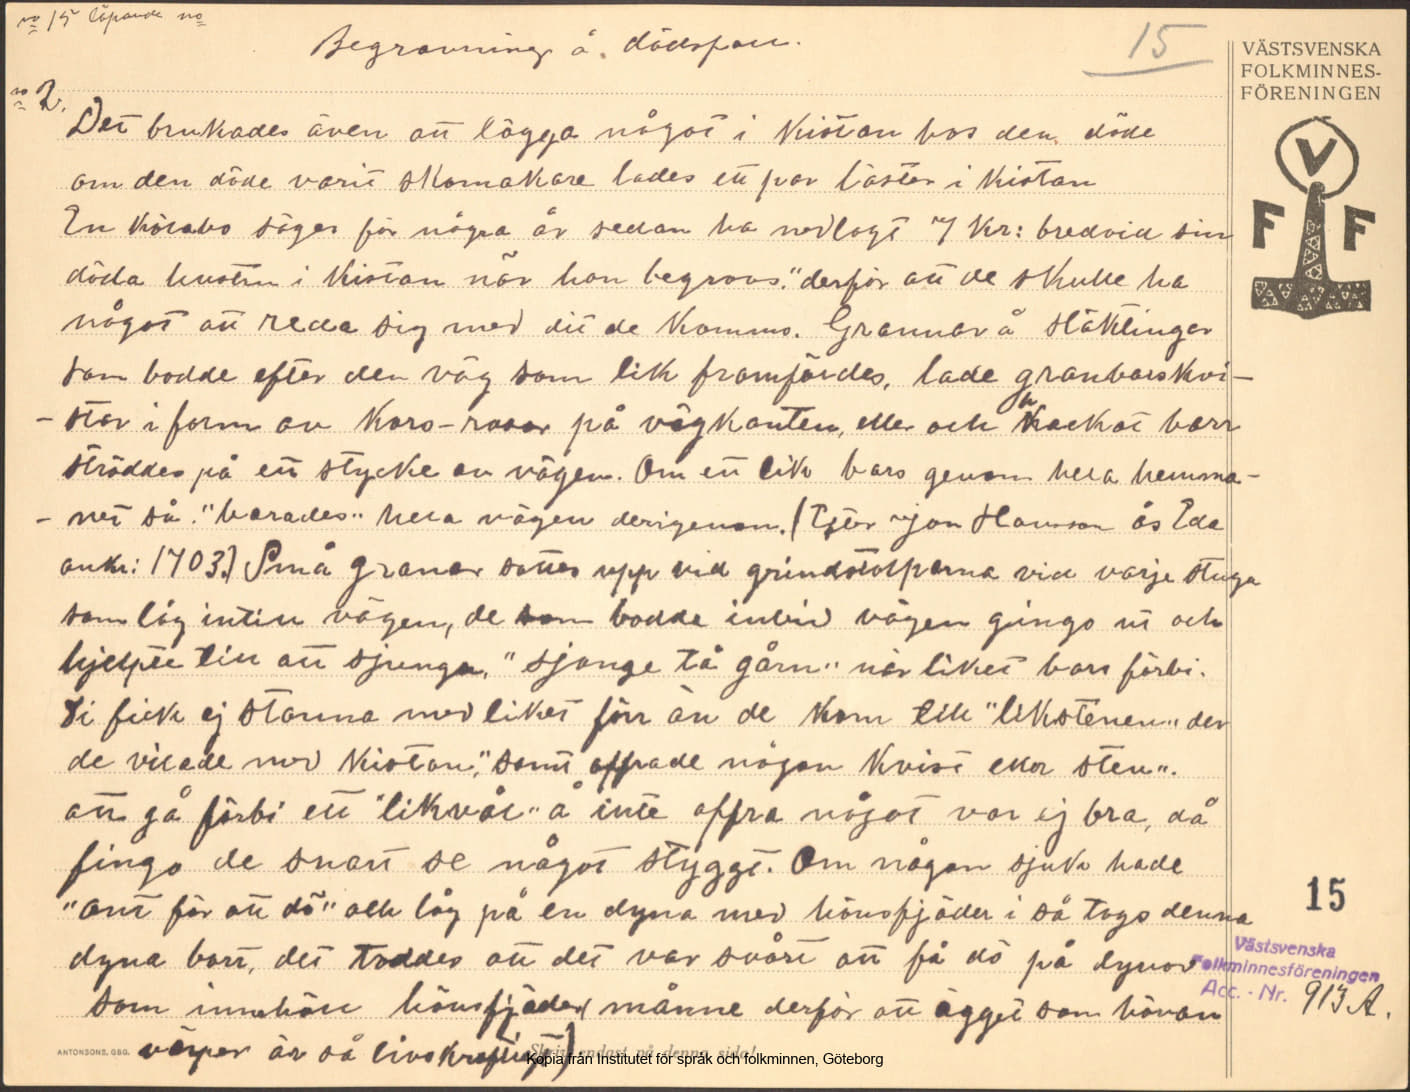 no 15 löpande no
Begravning å. dödsfall.
15
VÄSTSVENSKA
FOLKMINNES-
FÖRENINGEN
no 2.
Det brukades även att lägga något i kistan hos den döde
om den döde varit skomakare lades ett par läster i kistan
En säges för några år sedan ha nedlagt 7 kr: bredvid sin
döda hustru i kistan när hon begrovs." derför att de skulle ha
något att reda sig med dit de kommo. Grannar å släktingar
som bodde efter den väg som lik framfördes, lade granbarskvi-
- star i form av kors på vägkanten, eller och hackat barr
ströddes på ett stycke av vägen. Om ett lik bars genom hela hemma-
- net så "barades" hela vägen derigenom. (
ankr: 1703.) Små granar sattes upp vid grindstolparna vid varje stuga
som låg intill vägen, de som bodde invid vägen gingo ut och
hjelpte till att sjunga, "sjonge tå gårn" när liket bars förbi.
Di fick ej stanna med liket förr än de kom till "likstenen" der
de vilade med kistan," samt offrade någon kvist eller sten".
att gå förbi ett "likvåt" å inte offra något var ej bra, då
fingo de snart se något styggt. Om någon sjuk hade
"ont för att dö" och låg på en dyna med hönsfjäder i så togs denna
dyna bort, det troddes att det var svårt att få dö på dynor
som innehöll hönsfjäder (månne derför att ägget som hönan
värper är så livskraftigt)
VFF
15
Västsvenska
Folkminnesföreningen
Acc. - Nr. 913 A.
ANTONSONS, GBG.
Skriv endast på denna sida!
Kopia från Institutet för språk och folkminnen, Göteborg